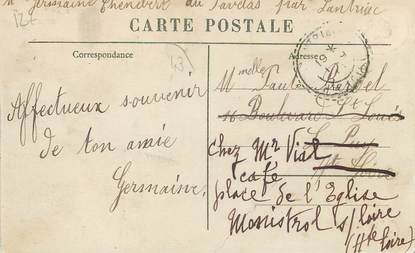 Germaine Chenebert au Javelas par Lantriac
CARTE POSTALE
Correspondance
Adresse
43
Affectueux souvenir
de ton amie
Germaine.
Mademelle
16 Boulevard St Louis
Le Puy
Hte Loire
chez Mr Vial
café
place de l'Eglise
Monistrol s/ Loire
(Hte Loire)